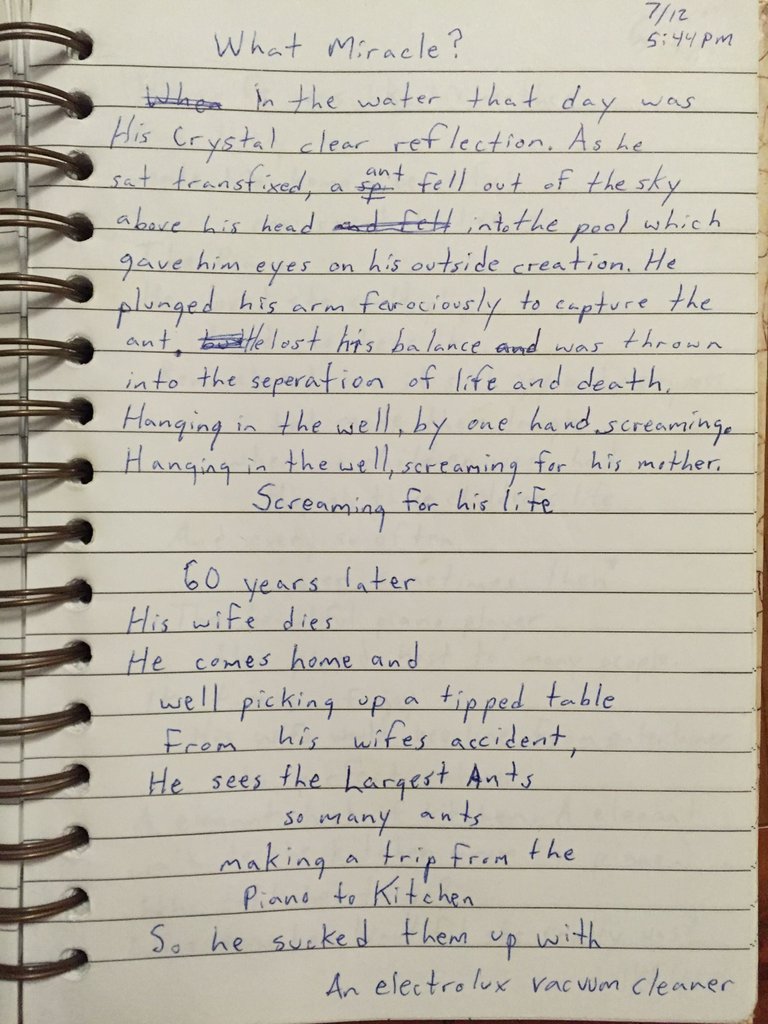 7/12
5:44 PM
What Miracle?
When In the water that day was
His Crystal clear reflection. As he
sat transfixed, a sp ant fell out of the sky
above his head and fell into the pool which
gave him eyes on his outside creation. He
plunged his arm ferociously to capture the
ant. but He lost his balance and was thrown
into the seperation of life and death.
Hanging in the well, by one hand, screaming.
Hanging in the well, screaming for his mother.
Screaming for his life
60 years later
His wife dies
He comes home and
well picking up a tipped table
From his wifes accident,
He sees the Largest Ants
so many ants
making a trip from the
Piano to Kitchen
So he sucked them up with
An electrolux vacuum cleaner